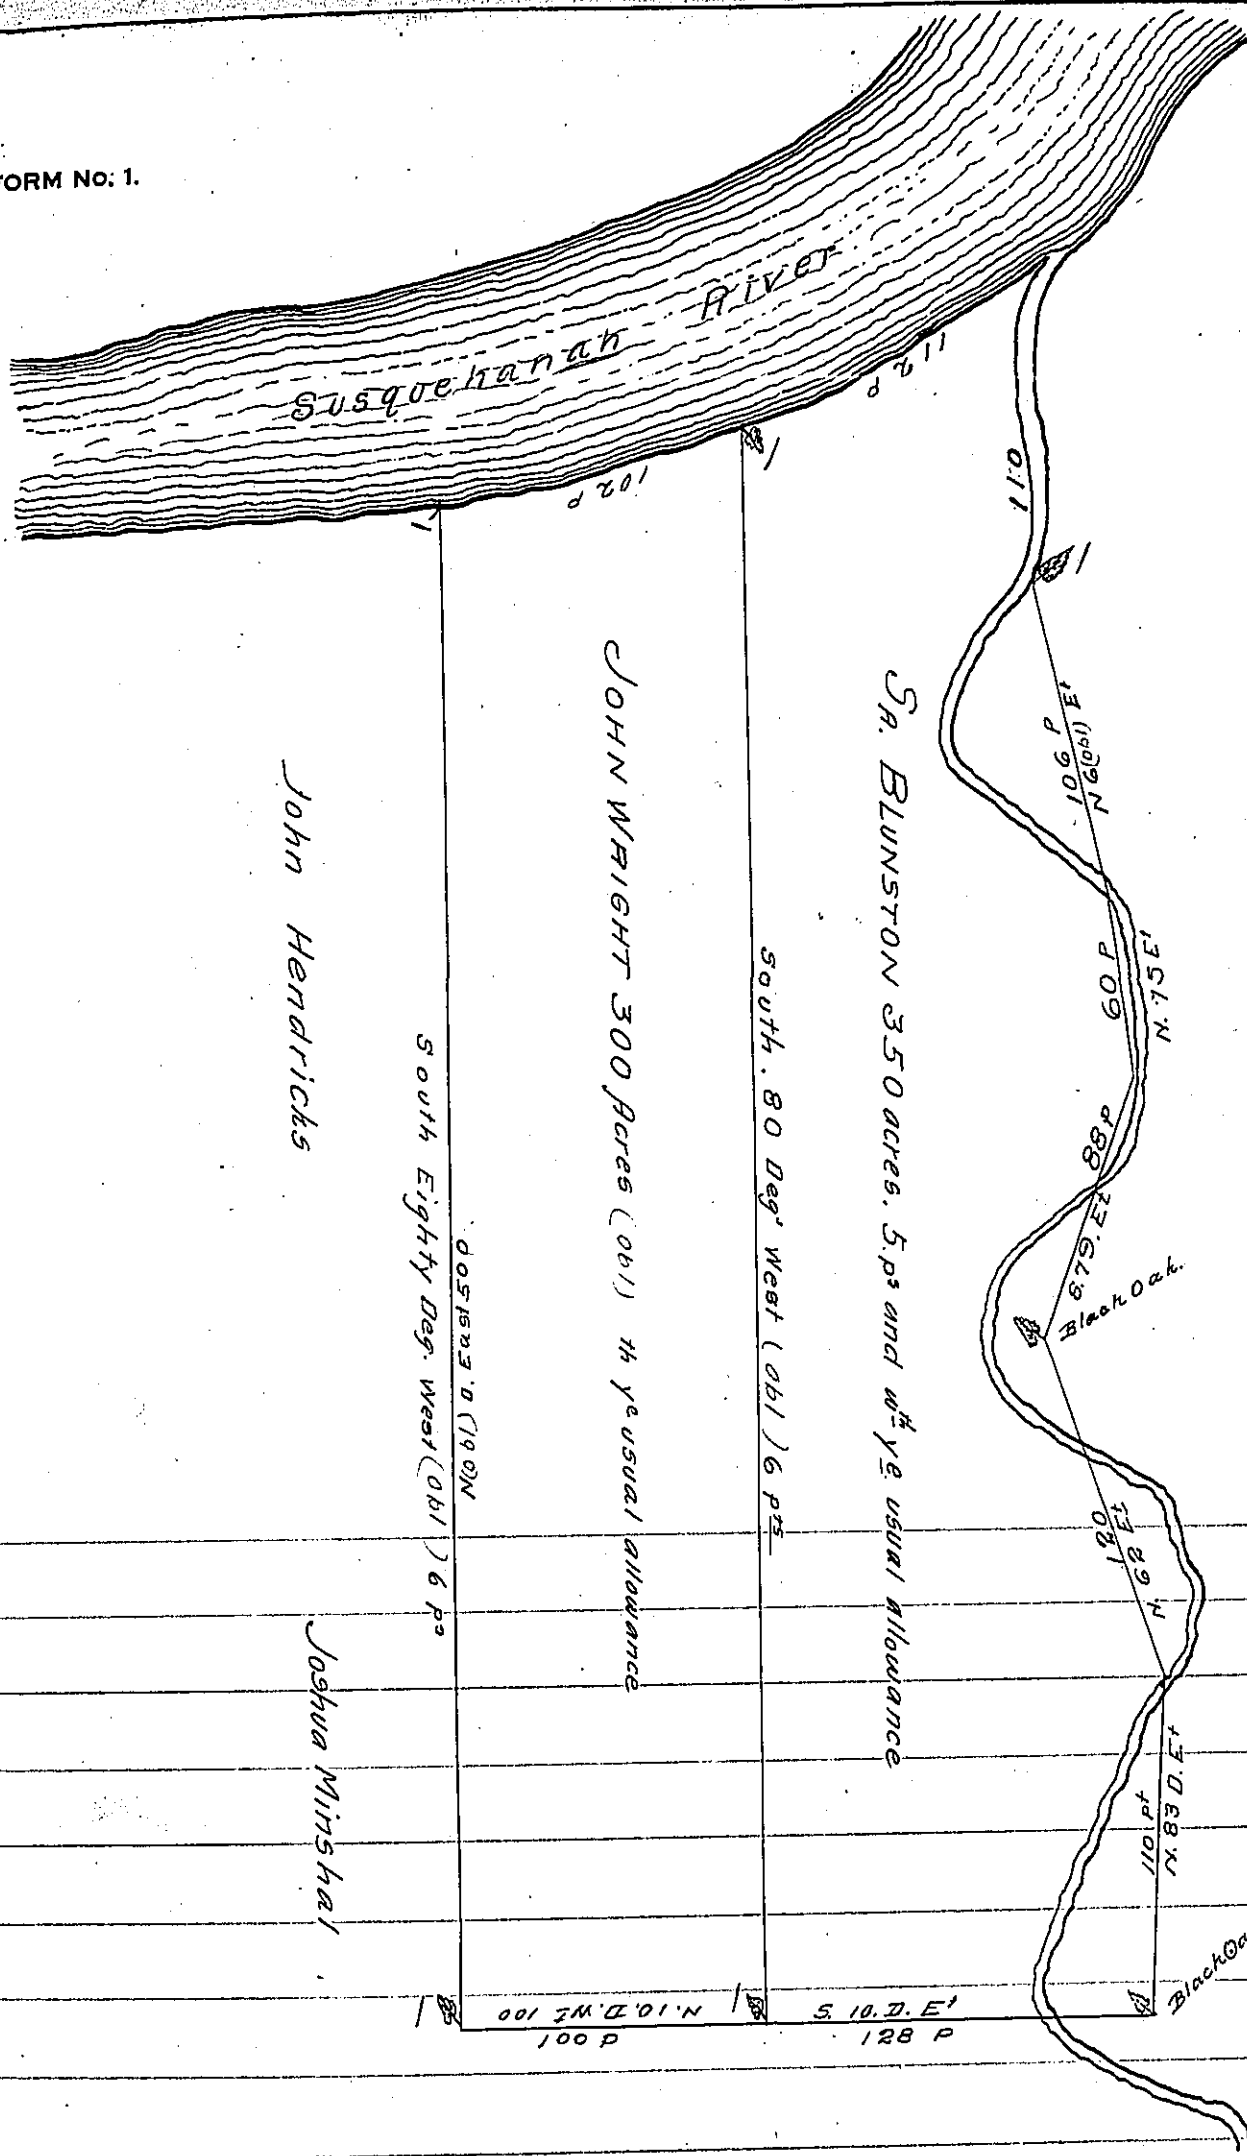 FORM No: 1.
Susquehanah River
112 P
102 P
011
1
1
1
106 P
N 6(obl) Et
60 P
N. 75 Et
88 P
S.79. Et
Black Oak.
120
N 62 Et
110 pt
N. 83 D. Et
Black Oa
SA. BLUNSTON 350 acres. 5.ps and wth ye usual allowance
South. 80 Deg' West (obl) 6 pts
JOHN WRIGHT 300 Acres (obl) th ye usual allowance
No (obl) D. East 500
South Eighty Deg. West (obl) 6 ps
John Hendricks
Joshua Minshal
S. 10. D. Et
128 P
N. 10. D. Wt 100
100 P
1
1